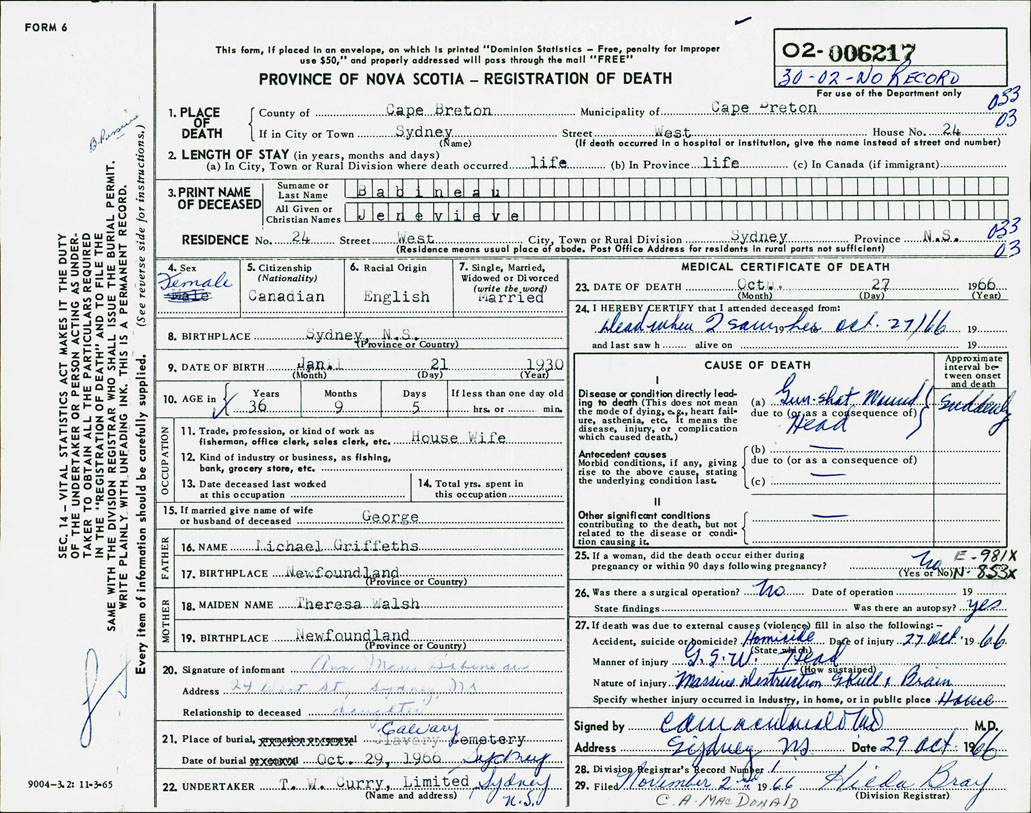 FORM 6
This form, if placed in an envelope, on which is printed "Dominion Statistics – Free, penalty for improper
use $50," and properly addressed will pass through the mail "FREE"
PROVINCE OF NOVA SCOTIA – REGISTRATION OF DEATH
02-006217
30-02-NO RECORD
For use of the Department only
033
03
1. PLACE OF DEATH
County of Cape Breton Municipality of Cape Breton
If in City or Town Sydney Street West House No. 24
(Name) (If death occurred in a hospital or institution, give the name instead of street and number)
2. LENGTH OF STAY (in years, months and days)
(a) In City, Town or Rural Division where death occurred life (b) In Province life (c) In Canada (if immigrant)
3. PRINT NAME OF DECEASED
Surname or Last Name Babineau
All Given or Christian Names Jenevieve
RESIDENCE No. 24 Street West City, Town or Rural Division Sydney Province N.S.
(Residence means usual place of abode. Post Office Address for residents in rural parts not sufficient)
033
03
4. Sex
Female
Male
5. Citizenship
(Nationality)
Canadian
6. Racial Origin
English
7. Single, Married,
Widowed or Divorced
(write the word)
Married
8. BIRTHPLACE Sydney, N.S.
(Province or Country)
9. DATE OF BIRTH Jan. 21 1930
(Month) (Day) (Year)
10. AGE in Years Months Days If less than one day old
36 9 5 hrs. or min.
OCCUPATION
11. Trade, profession, or kind of work as
fisherman, office clerk, sales clerk, etc. House Wife
12. Kind of industry or business, as fishing,
bank, grocery store, etc.
13. Date deceased last worked
at this occupation
14. Total yrs. spent in
this occupation
15. If married give name of wife
or husband of deceased George
FATHER
16. NAME Lichael Griffeths
17. BIRTHPLACE Newfoundland
(Province or Country)
MOTHER
18. MAIDEN NAME Theresa Walsh
19. BIRTHPLACE Newfoundland
(Province or Country)
20. Signature of informant Anne Marie Babineau
Address 24 West St, Sydney, NS
Relationship to deceased daughter
21. Place of burial, cremation or removal Calvary Cemetery
Date of burial Oct. 29, 1966 Sydney
22. UNDERTAKER T. W. Curry, Limited Sydney
(Name and address) N.S.
MEDICAL CERTIFICATE OF DEATH
23. DATE OF DEATH Oct. 27 1966
(Month) (Day) (Year)
24. I HEREBY CERTIFY that I attended deceased from:
Dead when I saw 19 her oct. 27/66 19
and last saw h alive on 19
CAUSE OF DEATH
Approximate
interval between onset
and death
I
Disease or condition directly leading to death (This does not mean
the mode of dying, e.g., heart failure, asthenia, etc. It means the
disease, injury, or complication
which caused death.)
(a) Gun-shot Wound Suddenly
due to (or as a consequence of)
Head
Antecedent causes
Morbid conditions, if any, giving
rise to the above cause, stating
the underlying condition last.
(b) —
due to (or as a consequence of)
(c) —
II
Other significant conditions
contributing to the death, but not
related to the disease or condition causing it.
—
25. If a woman, did the death occur either during
pregnancy or within 90 days following pregnancy? No
(Yes or No)
E-981X
N-853X
26. Was there a surgical operation? No Date of operation 19
State findings Was there an autopsy? yes
27. If death was due to external causes (violence) fill in also the following: –
Accident, suicide or homicide? Homicide Date of injury 27 Oct. 1966
(State which)
Manner of injury G.S.W. Head
(How sustained)
Nature of injury Massive destruction Skull & Brain
Specify whether injury occurred in industry, in home, or in public place Home
Signed by M.D.
Address Sydney NS Date 29 Oct 1966
28. Division Registrar's Record Number
29. Filed November 2nd 1966 Hilda Bray
(Division Registrar)
C. A. MACDONALD
SEC. 14 – VITAL STATISTICS ACT MAKES IT THE DUTY
OF THE UNDERTAKER OR PERSON ACTING AS UNDER-
TAKER TO OBTAIN ALL THE PARTICULARS REQUIRED
IN THE "REGISTRATION OF DEATH" AND TO FILE THE
SAME WITH THE DIVISION REGISTRAR WHO SHALL ISSUE THE BURIAL PERMIT.
WRITE PLAINLY, WITH UNFADING INK. THIS IS A PERMANENT RECORD.
Every item of information should be carefully supplied. (See reverse side for instructions.)
9004-3.2: 11-3-65